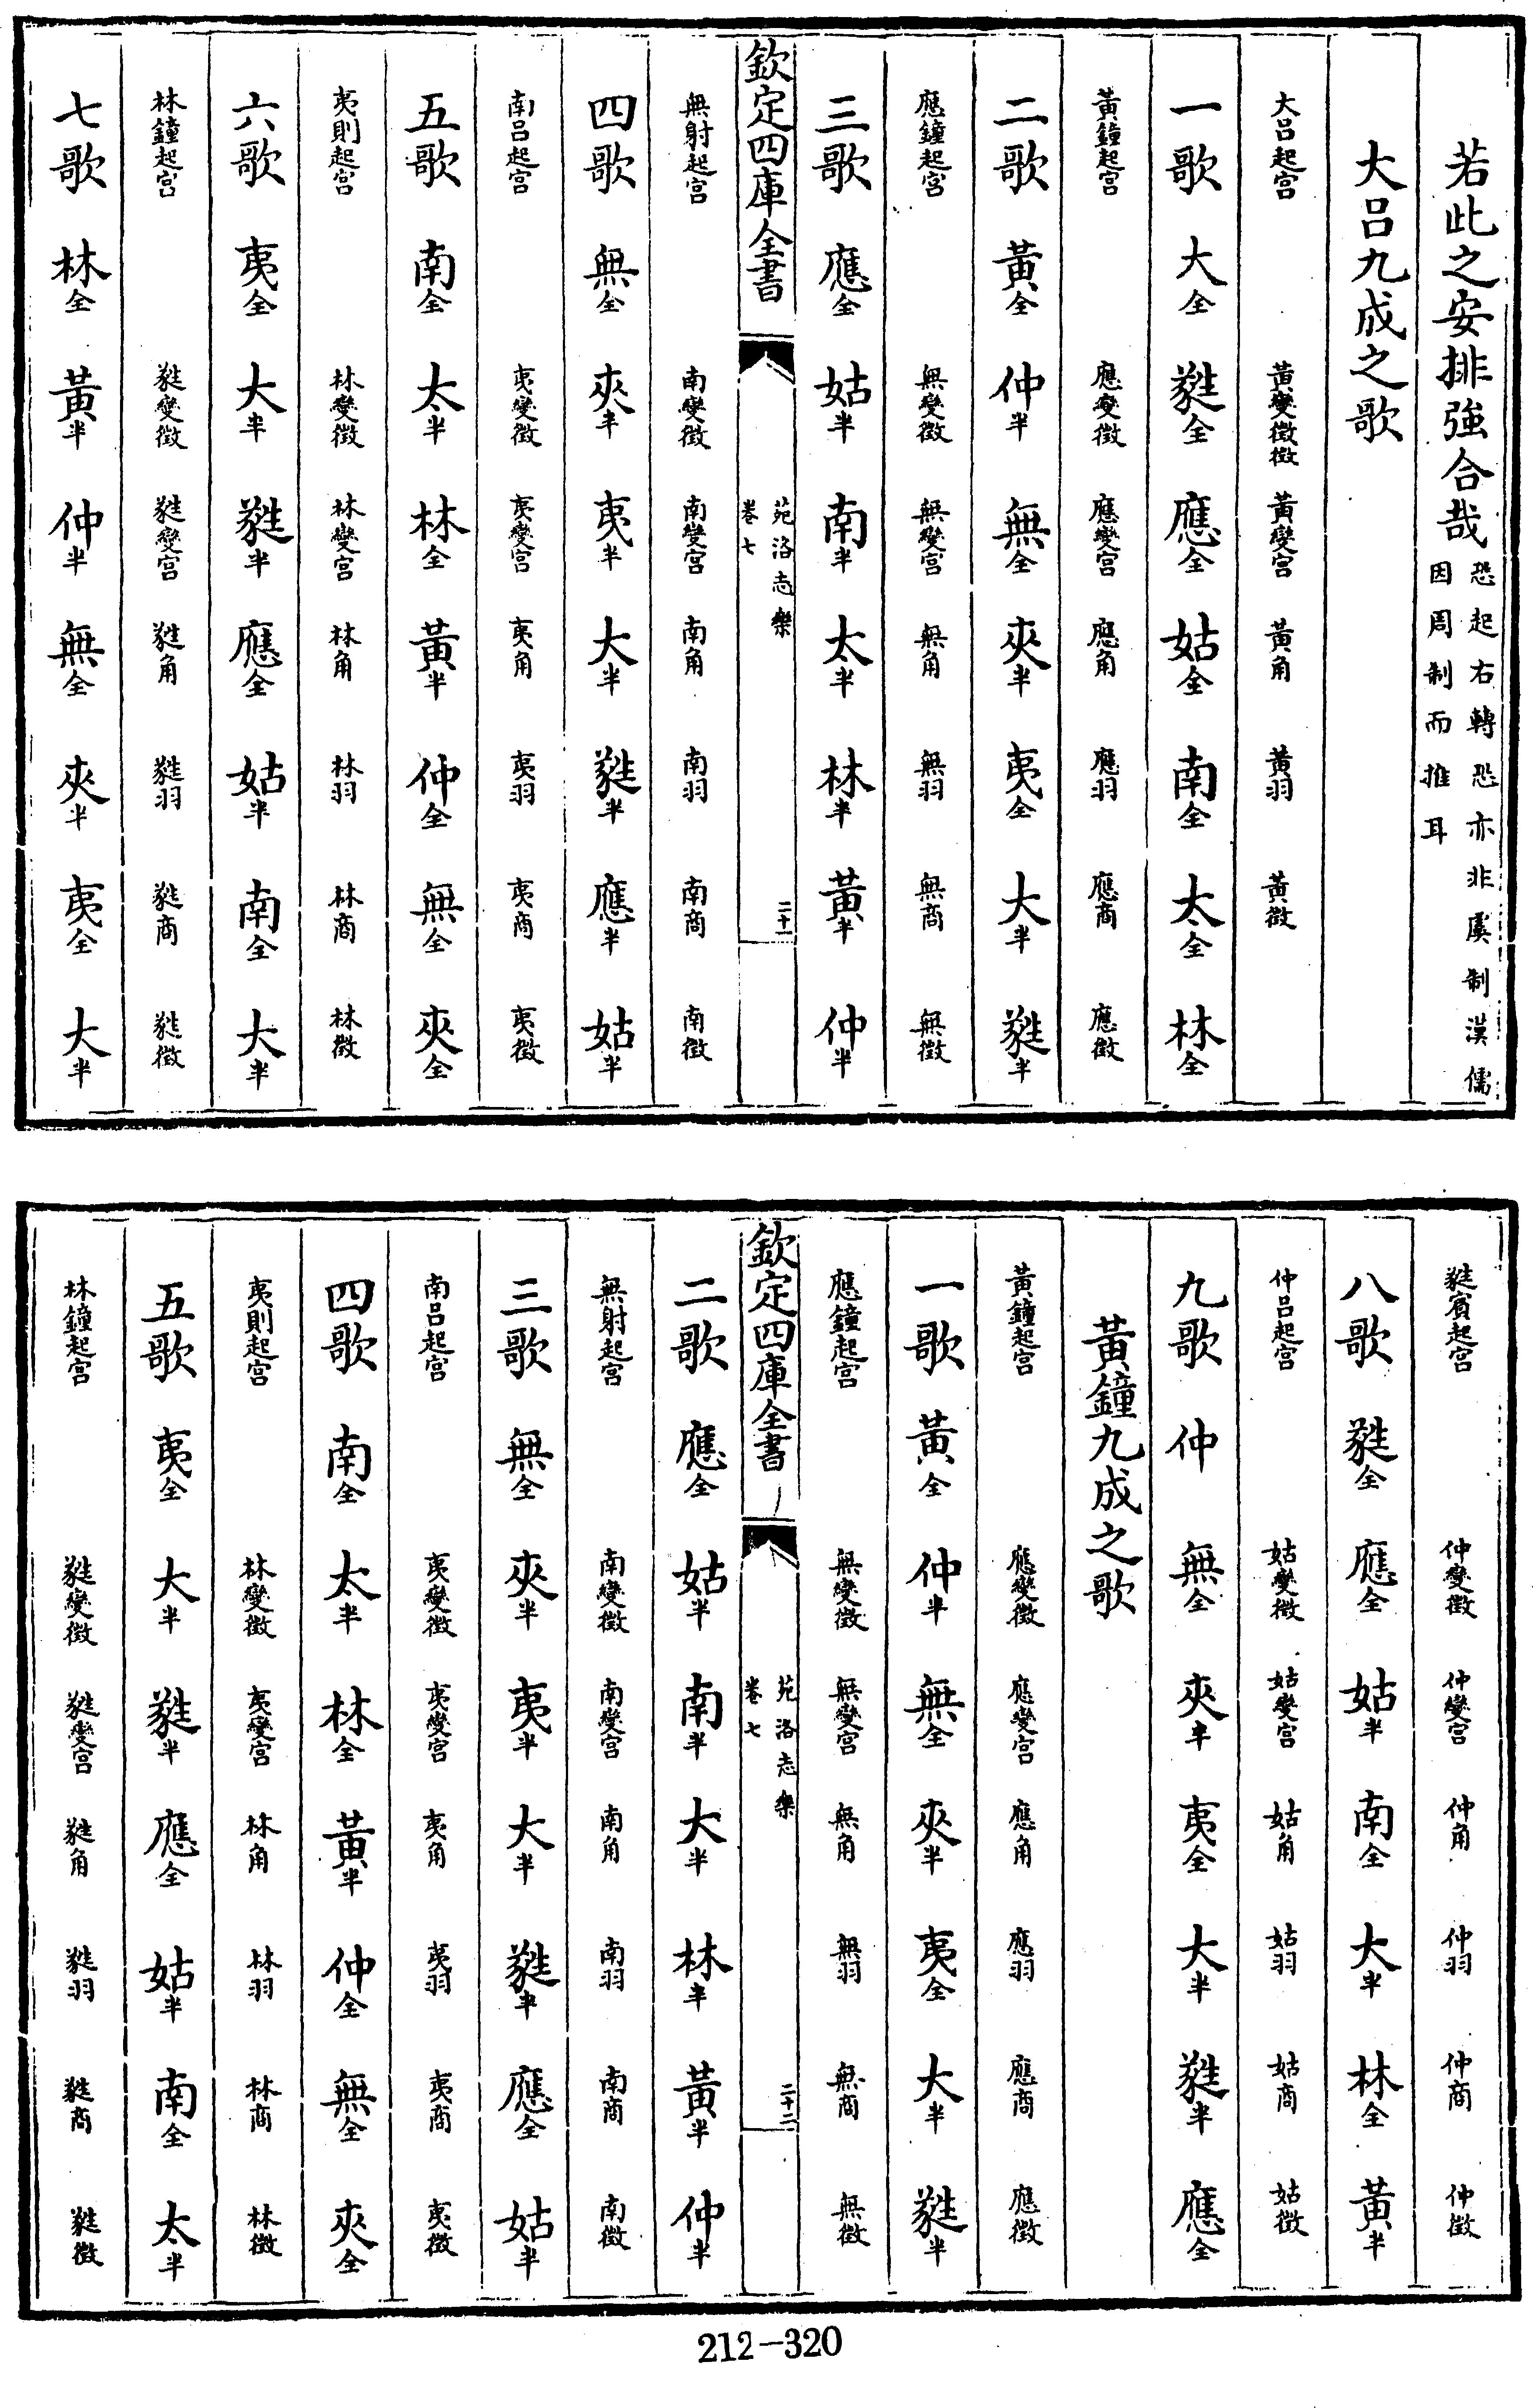 若此之安排強合哉恐起右轉恐亦非虞制漢儒
因周制而推耳
大呂九成之歌
大呂起宮 黃變徵徵 黃變宮 黃角 黃羽 黃徵
一歌 大全 蕤全 應全 姑全 南全 太全 林全
黃鐘起宮 應變徵 應變宮 應角 應羽 應商 應徵
二歌 黃全 仲半 無全 夾半 夷全 大半 蕤半
應鐘起宮 無變徵 無變宮 無角 無羽 無商 無徵
三歌 應全 姑半 南半 太半 林半 黃半 仲半
欽定四庫全書
苑洛志樂
卷七
二十一
無射起宮 南變徵 南變宮 南角 南羽 南商 南徵
四歌 無全 夾半 夷半 大半 蕤半 應半 姑半
南呂起宮 夷變徵 夷變宮 夷角 夷羽 夷商 夷徵
五歌 南全 太半 林全 黃半 仲全 無全 夾全
夷則起宮 林變徵 林變宮 林角 林羽 林商 林徵
六歌 夷全 大半 蕤半 應全 姑半 南全 大半
林鐘起宮 蕤變徵 蕤變宮 蕤角 蕤羽 蕤商 蕤徵
七歌 林全 黃半 仲半 無全 夾半 夷全 大半
蕤賓起宮 仲變徵 仲變宮 仲角 仲羽 仲商 仲徵
八歌 蕤全 應全 姑半 南全 大半 林全 黃半
仲呂起宮 姑變徵 姑變宮 姑角 姑羽 姑商 姑徵
九歌 仲 無全 夾半 夷全 大半 蕤半 應全
黃鐘九成之歌
黃鐘起宮 應變徵 應變宮 應角 應羽 應商 應徵
一歌 黃全 仲半 無全 夾半 夷全 大半 蕤半
應鐘起宮 無變徵 無變宮 無角 無羽 無商 無徵
欽定四庫全書
苑洛志樂
卷七
二十二
二歌 應全 姑半 南半 大半 林半 黃半 仲半
無射起宮 南變徵 南變宮 南角 南羽 南商 南徵
三歌 無全 夾半 夷半 大半 蕤半 應全 姑半
南呂起宮 夷變徵 夷變宮 夷角 夷羽 夷商 夷徵
四歌 南全 太半 林全 黃半 仲全 無全 夾全
夷則起宮 林變徵 夷變宮 林角 林羽 林商 林徵
五歌 夷全 大半 蕤半 應全 姑半 南全 太半
林鐘起宮 蕤變徵 蕤變宮 蕤角 蕤羽 蕤商 蕤徵
212-320